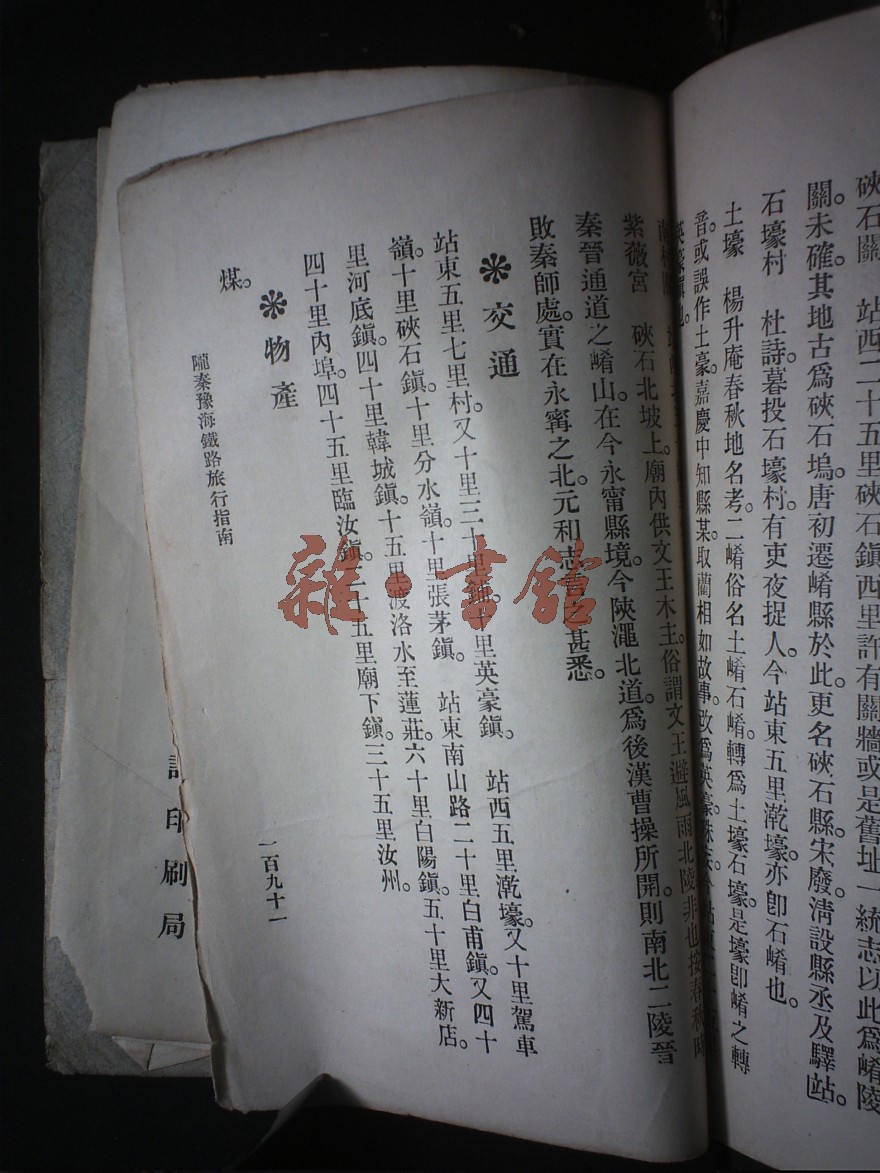 硤石關　站西二十五里硤石鎭西里許有關牆或是舊址一統志以此爲崤陵
關。未確。其地古爲硤石塢。唐初遷崤縣於此。更名硤石縣。宋廢。淸設縣丞及驛站。
石壕村　杜詩。暮投石壕村。有吏夜捉人。今站東五里乾壕。亦卽石崤也。
土壕　楊升庵春秋地名考。二崤俗名土崤石崤。轉爲土壕石壕。是壕卽崤之轉
音。或誤作土豪。嘉慶中知縣某。取藺相如故事。改爲英豪
英豪鎭也。
紫薇宮　硤石北坡上。廟內供文王木主。俗謂文王避風雨北陵非也按春秋時
秦晉通道之崤山。在今永甯縣境。今陝澠北道。爲後漢曹操所開。則南北二陵晉
敗秦師處。實在永甯之北。元和志言之甚悉。
❊交通
站東五里七里村。又十里三十里鋪。十里英豪鎭。　站西五里乾壕。又十里駕車
嶺。十里硤石鎭。十里分水嶺。十里張茅鎭。　站東南山路二十里白甫鎭。又四十
里河底鎭。四十里韓城鎭。十五里渡洛水至蓮莊。六十里白陽鎭。五十里大新店。
四十里內埠。四十五里臨汝鎭。二十五里廟下鎭。三十五里汝州。
❊物產
煤。
隴秦豫海鐵路旅行指南
一百九十一
印刷局
雜·書館